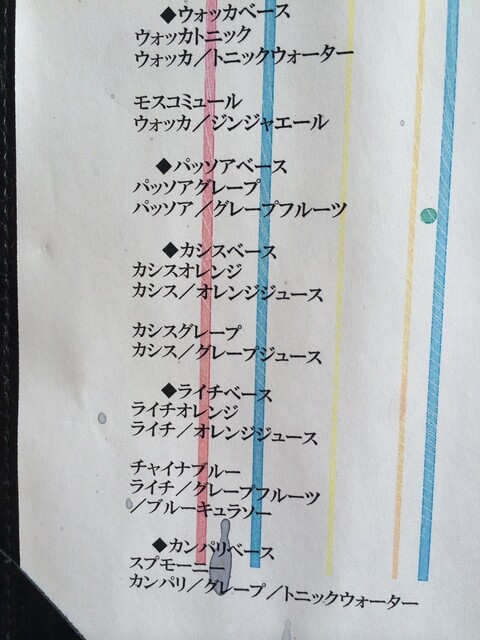 ◆ウォッカベース
ヴォッカトニック
ウォッカ／トニックウォーター
モスコミュール
ウォッカ／ジンジャエール
◆パッソアベース
パッソアグレープ
パッソア／グレープフルーツ
◆カシスベース
カシスオレンジ
カシス／オレンジジュース
カシスグレープ
カシス／グレープジュース
◆ライチベース
ライチオレンジ
ライチ／オレンジジュース
チャイナブルー
ライチ／グレープフルーツ
／ブルーキュラソー
◆カンパリベース
スプモーニー
カンパリ／グレープ／トニックウォーター